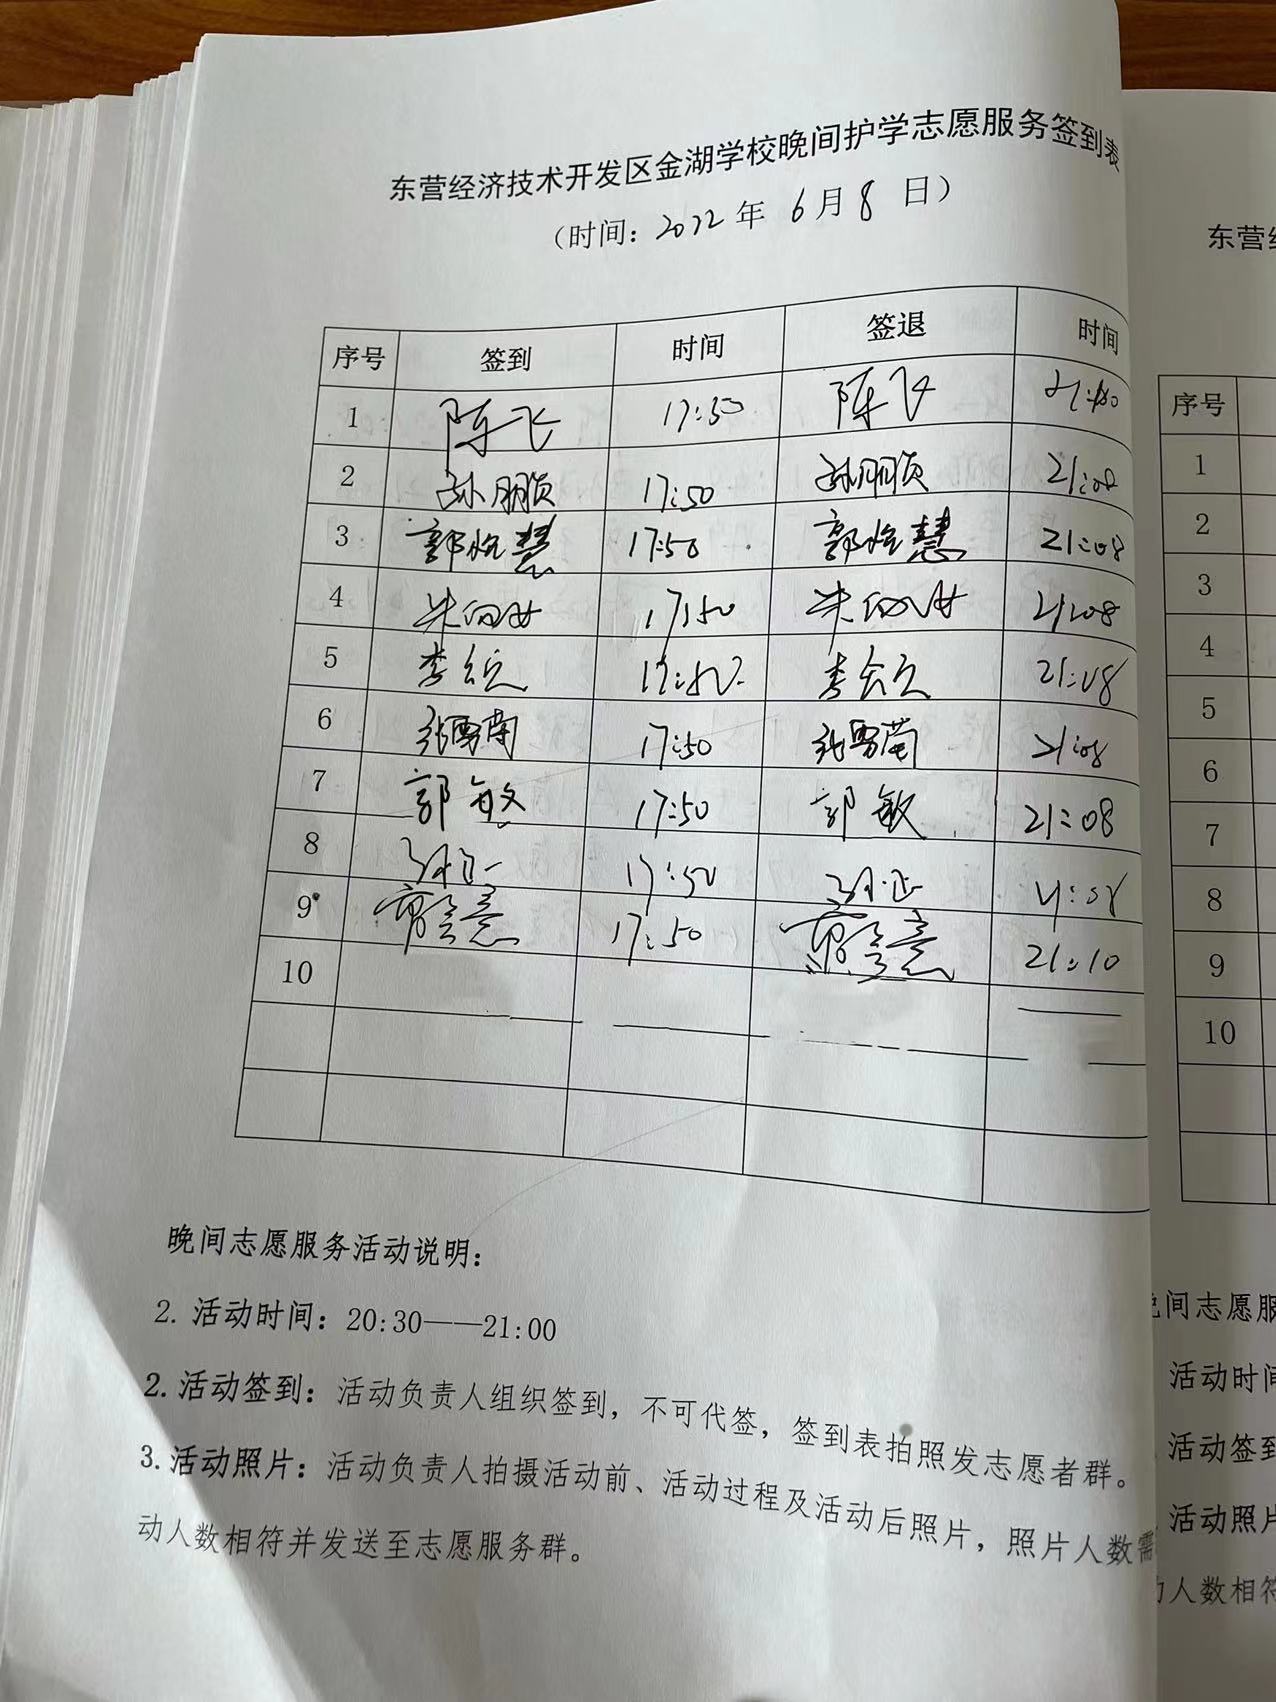 东营经济技术开发区金湖学校晚间护学志愿服务签到表
（时间：2022年 6月8日）
序号 签到 时间 签退 时间
1 陈飞 17:50 陈飞
2 孙朋顺 17:50 孙朋顺 21:08
3 郭 慧 17:50 郭 慧 21:08
4 朱 17:50 朱 21:08
5 李 李 21:08
6 张雪南 17:50 张雪南 21:08
7 郭敏 17:50 郭敏 21:08
8 17:50 21:08
9 17:50 21:10
10
晚间志愿服务活动说明：
2. 活动时间：20:30——21:00
2. 活动签到：活动负责人组织签到，不可代签，签到表拍照发志愿者群。
3. 活动照片：活动负责人拍摄活动前、活动过程及活动后照片，照片人数需
动人数相符并发送至志愿服务群。
东营
序号
1
2
3
4
5
6
7
8
9
10
间志愿服
活动时间
活动签到
活动照片
人数相符